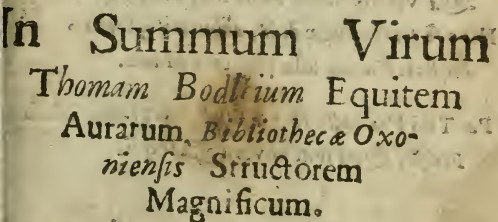 In Summum Virum
Thomam Bodleium Equitem
Auratum, Bibliothecæ Oxo-
nienſis Structorem
Magnificum.